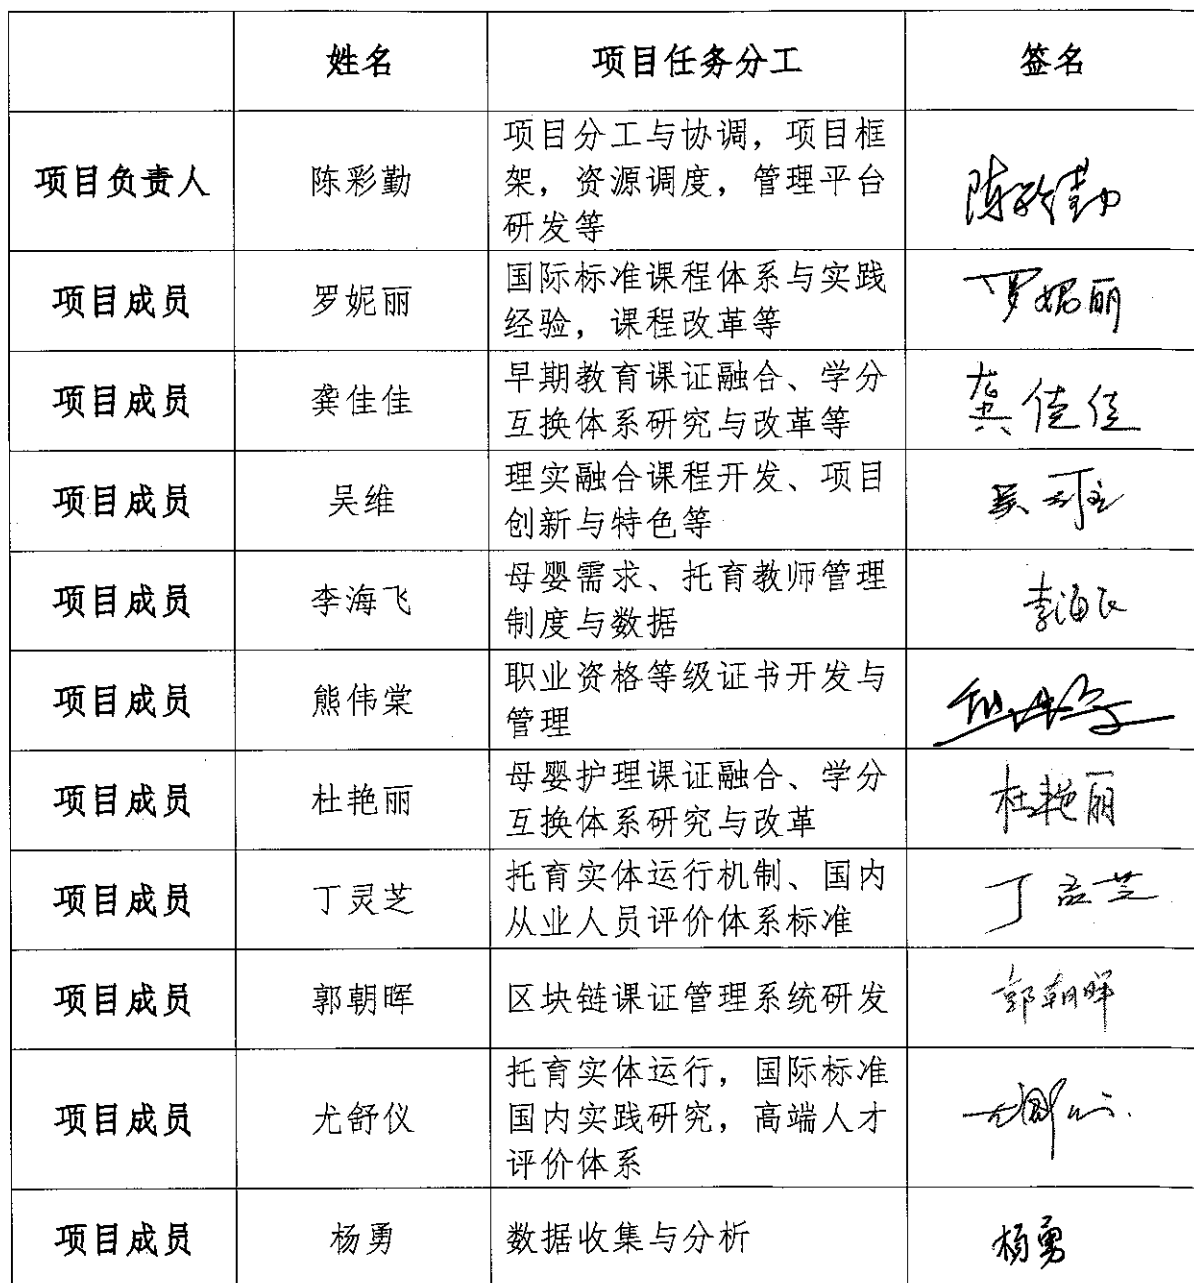 姓名 项目任务分工 签名
项目负责人 陈彩勤 项目分工与协调，项目框
架，资源调度，管理平台
研发等
陈彩勤
项目成员 罗妮丽 国际标准课程体系与实践
经验，课程改革等
罗妮丽
项目成员 龚佳佳 早期教育课证融合、学分
互换体系研究与改革等
龚佳佳
项目成员 吴维 理实融合课程开发、项目
创新与特色等
吴维
项目成员 李海飞 母婴需求、托育教师管理
制度与数据
李海飞
项目成员 熊伟棠 职业资格等级证书开发与
管理
项目成员 杜艳丽 母婴护理课证融合、学分
互换体系研究与改革
杜艳丽
项目成员 丁灵芝 托育实体运行机制、国内
从业人员评价体系标准
丁灵芝
项目成员 郭朝晖 区块链课证管理系统研发 郭朝晖
项目成员 尤舒仪 托育实体运行，国际标准
国内实践研究，高端人才
评价体系
项目成员 杨勇 数据收集与分析 杨勇